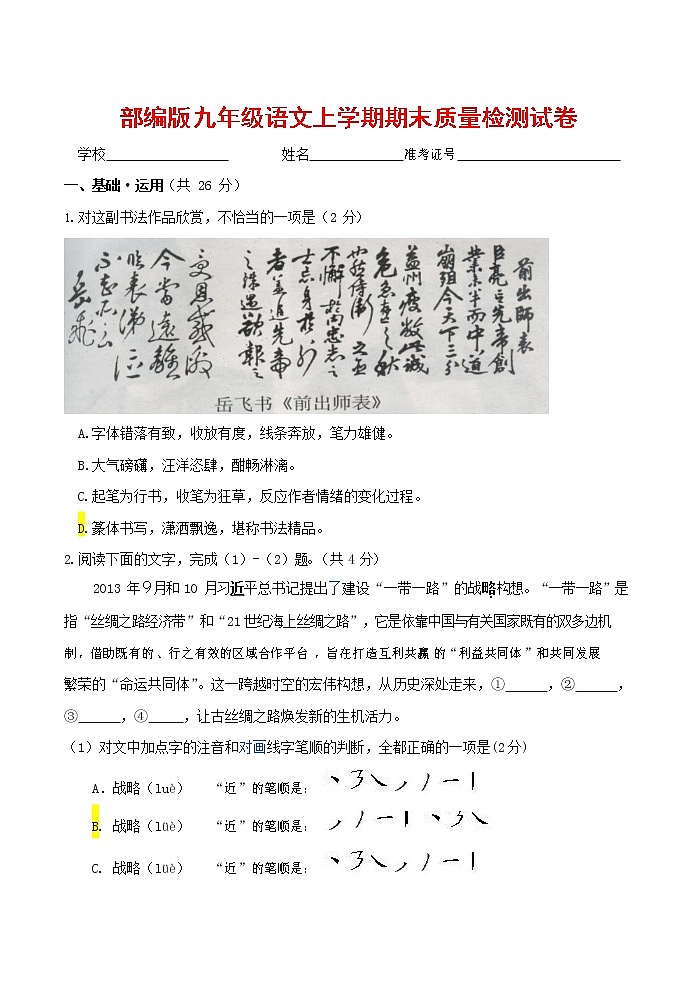 部编版九年级语文上学期期末质量检测试卷
学校 姓名 准考证号
一、基础·运用(共 26 分)
1.对这副书法作品欣赏,不恰当的一项是(2 分)
前出師表
臣亮言先帝創
業未半而中道
崩殂今天下三分
益州疲敝此誠
危急存亡之秋
也然侍衛之臣
不懈於内忠志之
士忘身於外
者蓋追先帝
之殊遇欲報之
受恩感激
今當遠離
臨表涕泣
不知所云
岳飛
岳飞书《前出师表》
A.字体错落有致,收放有度,线条奔放,笔力雄健。
B.大气磅礴,汪洋恣肆,酣畅淋漓。
C.起笔为行书,收笔为狂草,反应作者情绪的变化过程。
D.篆体书写,潇洒飘逸,堪称书法精品。
2.阅读下面的文字,完成(1)-(2)题。(共 4 分)
2013 年9月和 10 月习近平总书记提出了建设“一带一路”的战略构想。“一带一路”是
指“丝绸之路经济带”和“21世纪海上丝绸之路”,它是依靠中国与有关国家既有的双多边机
制,借助既有的、行之有效的区域合作平台,旨在打造互利共赢的“利益共同体”和共同发展
繁荣的“命运共同体”。这一跨越时空的宏伟构想,从历史深处走来,①______,②______,
③______,④_____,让古丝绸之路焕发新的生机活力。
(1)对文中加点字的注音和对画线字笔顺的判断,全都正确的一项是(2分)
A. 战略(luè) “近”的笔顺是:
B. 战略(lüè) “近”的笔顺是:
C. 战略(lüè) “近”的笔顺是: